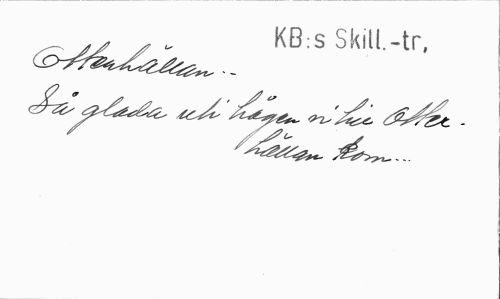 KB:s Skill.-tr.
Otterhällan..
Så glada uti hågen vi till Otter-
hällan kom...